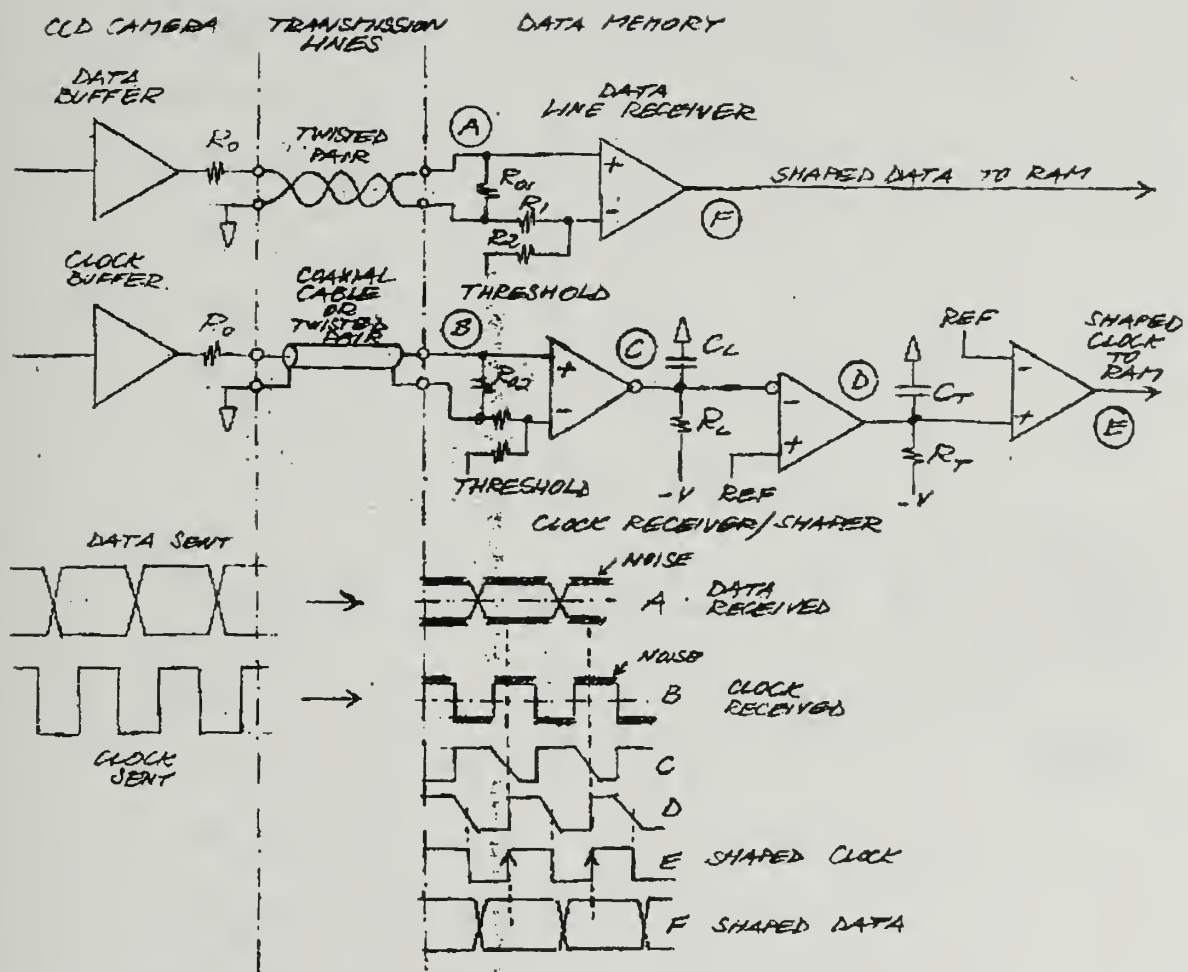 CCD CAMERA
TRANSMISSION
LINES
DATA MEMORY
DATA
BUFFER
R0
TWISTED
PAIR
A
R01
R1
R2
DATA
LINE RECEIVER
+
-
F
SHAPED DATA TO RAM
THRESHOLD
CLOCK
BUFFER
R0
COAXIAL
CABLE
OR
TWISTED
PAIR
B
R02
+
-
THRESHOLD
C
CL
RL
-V
-
+
REF
D
CT
RT
-V
REF
-
+
SHAPED
CLOCK
TO
RAM
E
CLOCK RECEIVER/SHAPER
DATA SENT
NOISE
A DATA
RECEIVED
NOISE
B CLOCK
RECEIVED
CLOCK
SENT
C
D
E SHAPED CLOCK
F SHAPED DATA